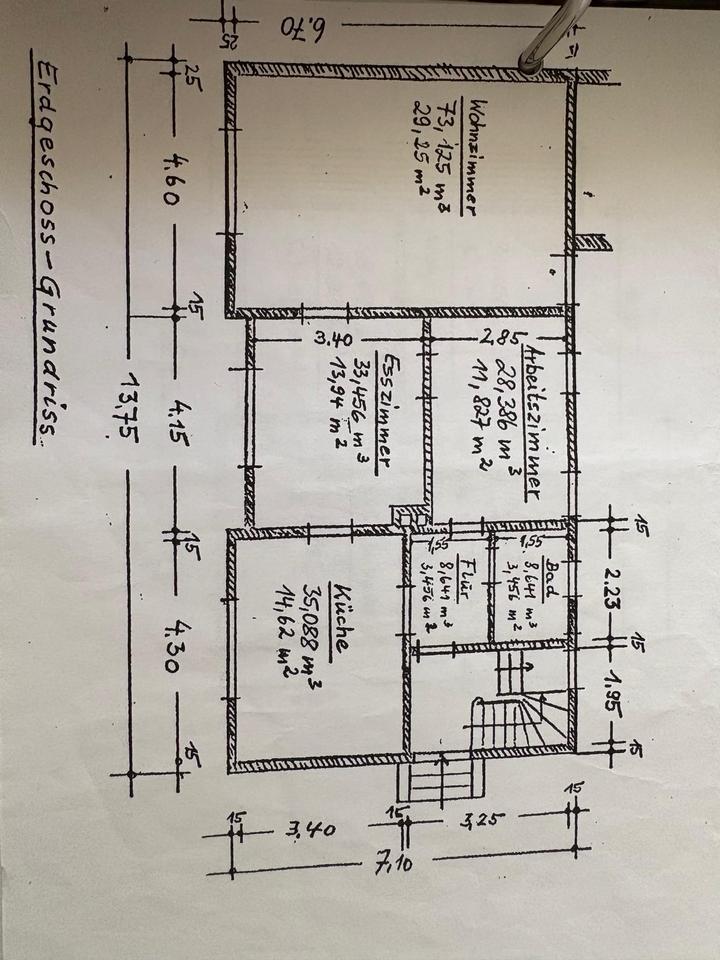 Erdgeschoss-Grundriss.
Wohnzimmer
73,125 m³
29,25 m²
Arbeitszimmer
28,386 m³
11,827 m²
Esszimmer
33,456 m³
13,94 m²
Bad
8,641 m³
3,456 m²
Flur
8,641 m³
3,456 m²
Küche
35,088 m³
14,62 m²
3.40
2,85
1,55
1,55
25
6.70
15
2.23
15
1.95
15
25
4.60
15
4.15
15
4.30
15
13.75
15
3.40
15
3,25
15
7,10